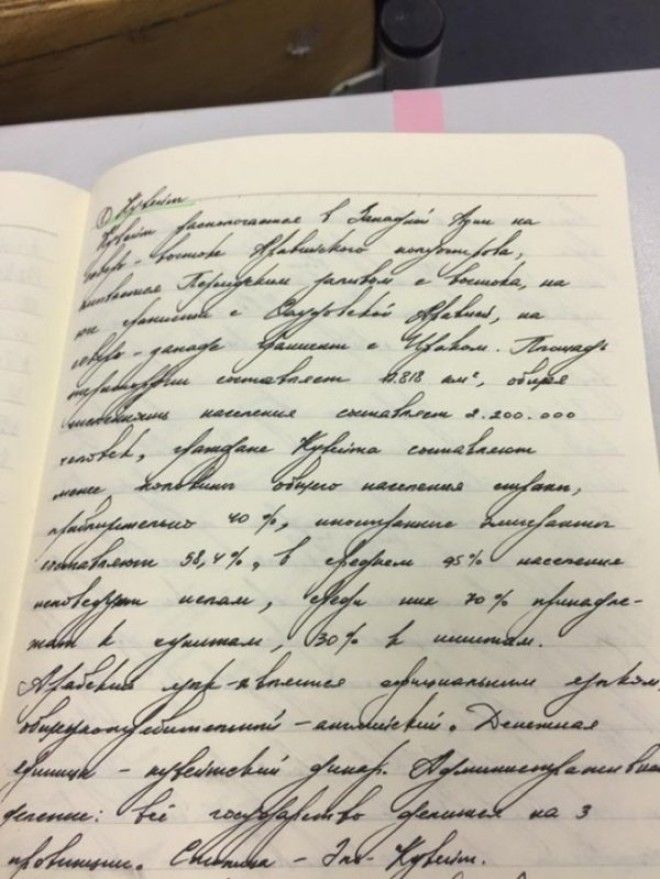 ① Кувейт
Кувейт расположенное в Западной Азии на
северо-востоке Аравийского полуострова,
Персидским заливом с востока, на
юге граничит с Саудовской Аравией, на
северо-западе граничит с Ираком. Площадь
территории составляет 17.818 км², общая
численность населения составляет 2.200.000
человек, граждане Кувейта составляют
менее половины общего населения страны,
приблизительно 40%, иностранные эмигранты
составляют 58,4%, в среднем 95% населения
исповедуют ислам, среди них 70% принадле-
жат к сунитам, 30% к шиитам.
Арабский язык является официальным языком,
общеупотребительной – английский. Денежная
единица – кувейтский динар. Административное
деление: всё государство делится на 3
провинции. Столица – Эль-Кувейт.